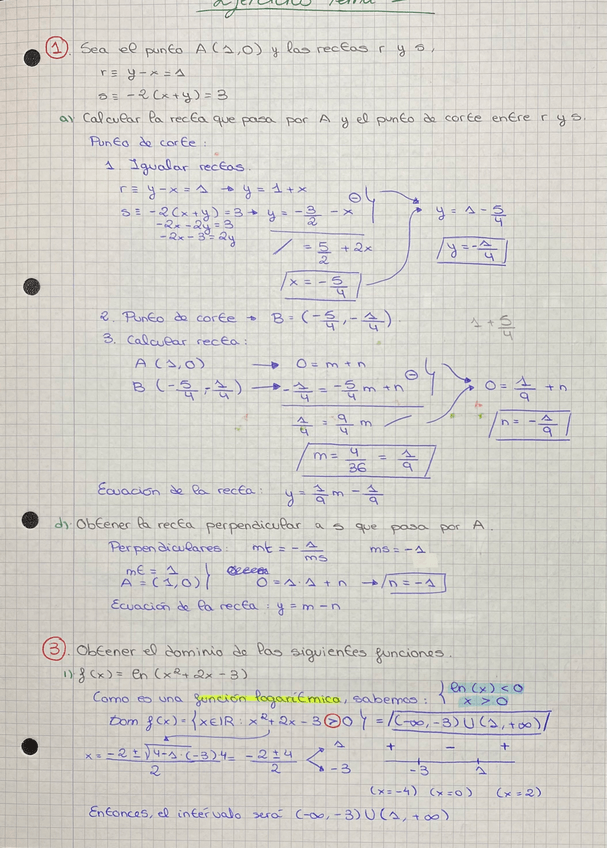 Ejercicios Tema
① Sea el punto A(1,0) y las rectas r y s,
r ≡ y - x = 1
s ≡ -2(x+y) = 3
a) Calcular la recta que pasa por A y el punto de corte entre r y s.
Punto de corte:
1 Igualar rectas.
r ≡ y - x = 1 → y = 1 + x
s ≡ -2(x+y) = 3 → y = -3/2 - x
-2x - 2y = 3
-2x - 3 = 2y
⊖
/ = 5/2 + 2x
x = -5/4
y = 1 - 5/4
y = -1/4
2. Punto de corte → B = (-5/4, -1/4)
1 + 5/4
3. Calcular recta:
A (1,0) → 0 = m + n
B (-5/4, -1/4) → -1/4 = -5/4 m + n
⊖
1/4 = 9/4 m
m = 4/36 = 1/9
0 = 1/9 + n
n = -1/9
Ecuación de la recta: y = 1/9 m - 1/9
d) Obtener la recta perpendicular a s que pasa por A.
Perpendiculares: mt = -1/ms ms = -1
mt = 1
A = (1,0)
0 = 1·1 + n → n = -1
Ecuación de la recta: y = m - n
③ Obtener el dominio de las siguientes funciones.
1) f(x) = ln (x² + 2x - 3)
Como es una función logarítmica, sabemos: { ln (x) < 0
x > 0
Dom f(x) = {x∈ℝ : x² + 2x - 3 > 0} = (-∞, -3) ∪ (1, +∞)
x = -2 ± √4-1·(-3)4 / 2 = -2 ± 4 / 2 < 1
-3
+ - +
-3 1
(x=-4) (x=0) (x=2)
Entonces, el intérvalo será: (-∞, -3) ∪ (1, +∞)